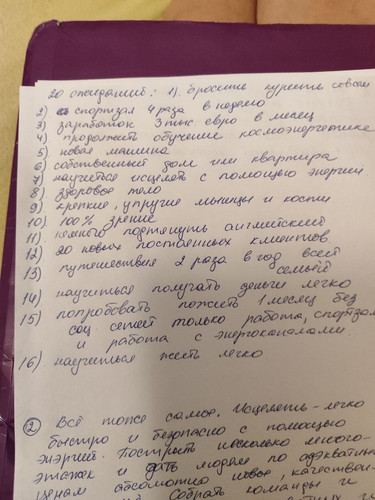 20 ожиданий: 1) бросить курить совсем
2) спортзал 4 раза в неделю
3) заработок 3 тыс евро в месяц
4) продолжить обучение космоэнергетике
5) новая машина
6) собственный дом или квартира
7) научиться исцелять с помощью энергии
8) здоровое тело
9) крепкие, упругие мышцы и кости
10) 100% зрение
11) немного подтянуть английский
12) 20 новых постоянных клиентов
13) путешествия 2 раза в год всей семьёй
14) научиться получать деньги легко
15) попробовать пожить 1 месяц без
соц сетей только работа, спортзал
и работа с энергоканалами
16) научиться жить легко
2 Всё тоже самое. Исцелять - легко
быстро и безопасно с помощью
энергий. Построить несколько много-
этажек и дать людям по адекватным
ценам абсолютно новые, качествен-
Собрать команды и